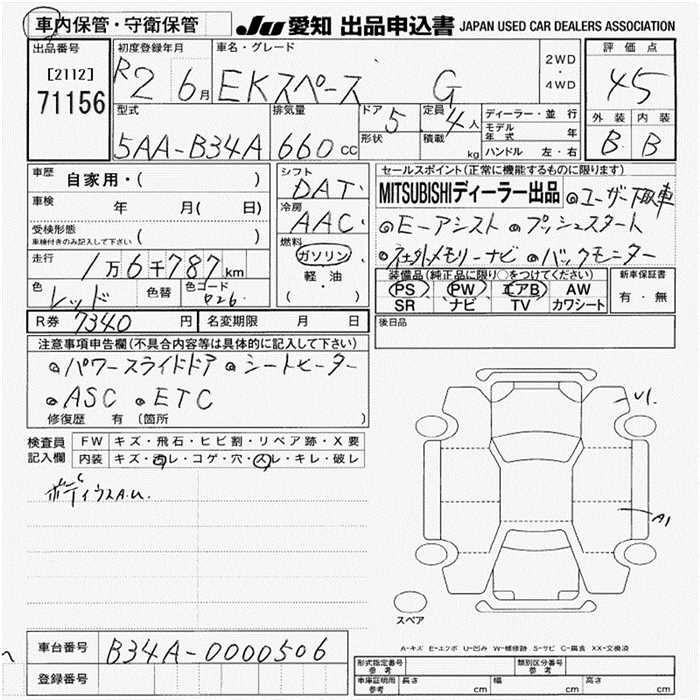 車内保管・守衛保管
JU 愛知 出品申込書 JAPAN USED CAR DEALERS ASSOCIATION
出品番号
[2112]
71156
初度登録年月
R2 6月
車名・グレード
EKスペース G
2WD
・
4WD
評価点
4.5
型式
5AA-B34A
排気量
660 CC
ドア 5
形状
定員 4人
積載 kg
ディーラー・並行
モデル年式 年
ハンドル 左・右
外装 内装
B B
車歴 自家用・( )
車検 年 月( 日)
受検形態
車検付きのみ記入して下さい ( )
走行 1万6千787km
色 レッド 色替 色コード P26
シフト
DAT
冷房
AAC
燃料
ガソリン
軽・油
( )
セールスポイント(正常に機能するものに限ります)
MITSUBISHIディーラー出品 ◎ユーザー下取車
◎Eーアシスト ◎プッシュスタート
◎社外メモリーナビ ◎バックモニター
装備品(純正品に限り○をつけてください)
PS PW エアB AW
SR ナビ TV カワシート
新車保証書
有・無
R券 7340 円 名変期限 月 日
後日品
注意事項申告欄(不具合内容等は具体的に記入して下さい)
◎パワースライドドア ◎シートヒーター
◎ASC ◎ETC
修復歴 有 (箇所 )
検査員
記入欄
FW キズ・飛石・ヒビ割・リペア跡・X要
内装 キズ・汚レ・コゲ・穴・スレ・キレ・破レ
ボディウスA.U.
U1
A1
スペア
A-キズ E-エクボ U-凹み W-補修跡 S-サビ C-腐食 XX-交換済
車台番号 B34A-0000506
登録番号
形式指定番号 参考
類別区分番号 参考
車庫証明用 参考 長さ cm 幅 cm 高さ cm